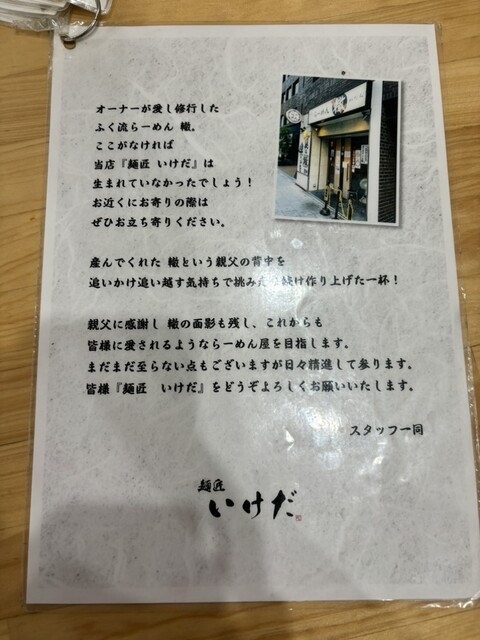 オーナーが愛し修行した
ふく流らーめん 轍。
ここがなければ
当店『麺匠 いけだ』は
生まれていなかったでしょう！
お近くにお寄りの際は
ぜひお立ち寄りください。
産んでくれた 轍という親父の背中を
追いかけ追い越す気持ちで挑み 続け作り上げた一杯！
親父に感謝し 轍の面影も残し、これからも
皆様に愛されるようならーめん屋を目指します。
まだまだ至らない点もございますが日々精進して参ります。
皆様『麺匠 いけだ』をどうぞよろしくお願いいたします。
スタッフ一同
麺匠
いけだ